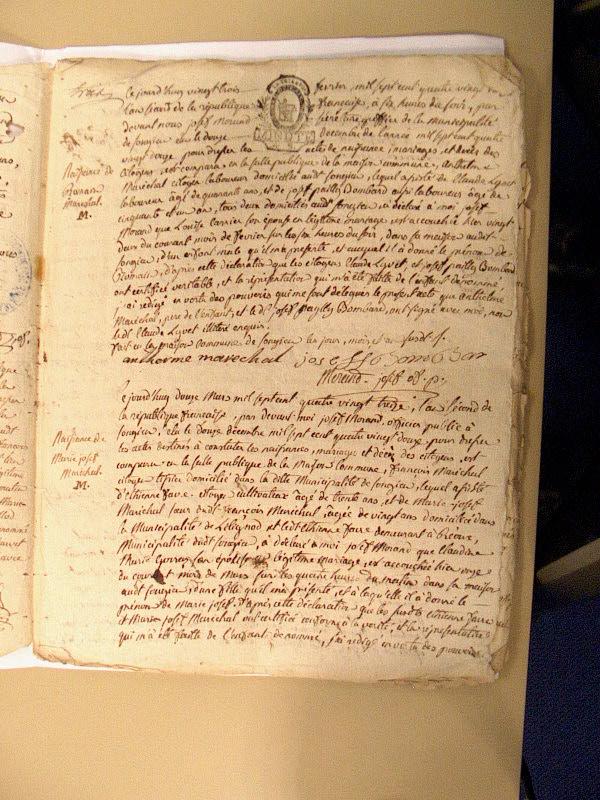 ce jourd'huy vingt trois février mil sept cent quatre vingt
l'an second de la république française, à six heures du soir, par
devant nous joseph Morand officier de la municipalité
de songieu elu le douze Décembre de l'annee mil sept cent quatre
vingt douze pour dresser les actes de naissance, mariages, et décès des
Citoyens, est comparu en la salle publique de la maison commune, anthelme
Maréchal citoyen laboureur domicilié audt songieu, lequel assisté de Claude Lyvet
laboureur âgé de quarante ans, et de josef pailly Bombard aussi laboureur âgé de
cinquante et un an, tous deux domiciliés audt songieu, a déclaré à moi josef
Morand que Louise Carrier son épouse en légitime mariage est accouchée hier vingt
deux du courant mois de fevrier sur les six heures du soir, dans sa maison audit
songieu, d'un enfant mâle qu'il m'a présenté, et auquel il à donné le prénom de
d'après cette déclaration que les citoyens Claude Lyvet, et josef pailly Bombard
ont certifié véritable, et la réprésentation qui m'a été faitte de l'enfant denommé,
j'ai rédigé en vertu des pouvoirs qui me sont délégués le présent acte que anthelme
Maréchal, père de l'enfant, et le dt josef pailly Bombard, ont signé avec moi, non
ledt Claude Lyvet illiteré enquis.
fait en la maison commune de songieu les jour, mois, et an susdt.
anthorme marechal joseff Bombar
Morand josef of. p.
Naissance de
Marechal
M.
ce jourd'huy douze Mars mil sept cent quatre vingt treize, l'an second de
la république française, par devant moi josef Morand, officier public à
songieu, elu le douze décembre mil sept cent quatre vingt douze pour dresser
les actes destinés à constater les naissances, mariages et décès des citoyens, est
comparu en la salle publique de la Maison Commune, françois Maréchal
citoyen domicilié dans la ditte Municipalité de songieu lequel assisté
d'étienne favre citoyen cultivateur âgé de trente ans, et de Marie josef
Maréchal sœur dudt françois Maréchal, âgée de vingt ans domiciliée dans
la Municipalité de et ledt étienne favre demeurant à
Municipalité dudt songieu, a déclaré à moi josef Morand que claudine
Marie son épouse en légitime mariage, est accouchée hier onze
du courant mois de Mars sur les quatre heures du matin dans sa maison
audt songieu, d'une fille qu'il m'a présenté, et à laquelle il à donné le
prénom de Marie josef. D'après cette déclaration que les susdts étienne favre
et Marie josef Maréchal ont certifié conforme à la vérité, et la réprésentation
qui m'a été faitte de l'enfant denommé, j'ai rédigé en vertu des pouvoirs
Naissance de
Marie josef
Maréchal.
M.